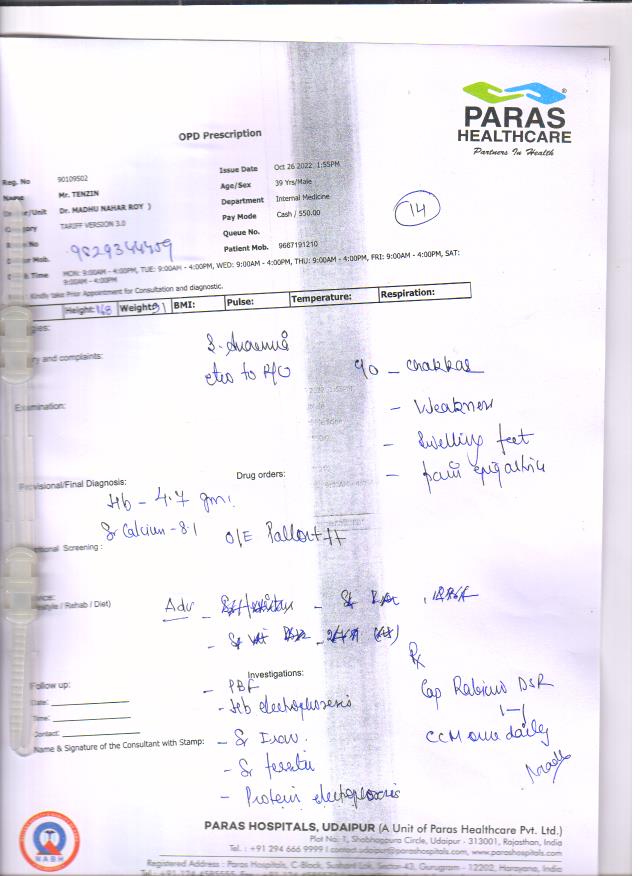 PARAS
HEALTHCARE
Partners In Health
OPD Prescription
Reg. No 90109502
Issue Date Oct 26 2022 1:55PM
Name Mr. TENZIN
Age/Sex 39 Yrs/Male
/Unit Dr. MADHU NAHAR ROY )
Department Internal Medicine
TARIFF VERSION 3.0
Pay Mode Cash / 550.00
14
Queue No.
Mob. 9829344459
Patient Mob. 9667191210
Time MON: 9:00AM - 4:00PM, TUE: 9:00AM - 4:00PM, WED: 9:00AM - 4:00PM, THU: 9:00AM - 4:00PM, FRI: 9:00AM - 4:00PM, SAT:
9:00AM - 4:00PM
Kindly take Prior Appointment for Consultation and diagnostic.
Height: 168 Weight: 81 BMI: Pulse: Temperature: Respiration:
gies:
ry and complaints:
c/o - chakkar
Examination:
- Weakness
- Swelling feet
- pain epigastric
Provisional/Final Diagnosis:
Drug orders:
Hb - 4.7 gm.
Sr Calcium - 8.1
O/E Pallor ++
onal Screening :
vice:
estyle / Rehab / Diet)
Adv
Rx
Investigations:
- PBF
Cap Rabicus DSR
Follow up:
- Hb electrophoresis
1-1
Date:
CCM once daily
Time:
Contact:
Name & Signature of the Consultant with Stamp:
- Sr Iron.
- Sr ferritin
- Protein electrophoresis
NABH
PARAS HOSPITALS, UDAIPUR (A Unit of Paras Healthcare Pvt. Ltd.)
Plot No. 1, Shobhagpura Circle, Udaipur - 313001, Rajasthan, India
Tel. : +91 294 666 9999 | contact.udaipur@parashospitals.com, www.parashospitals.com
Registered Address : Paras Hospitals, C-Block, Sushant Lok, Sector-43, Gurugram - 12202, Harayana, India